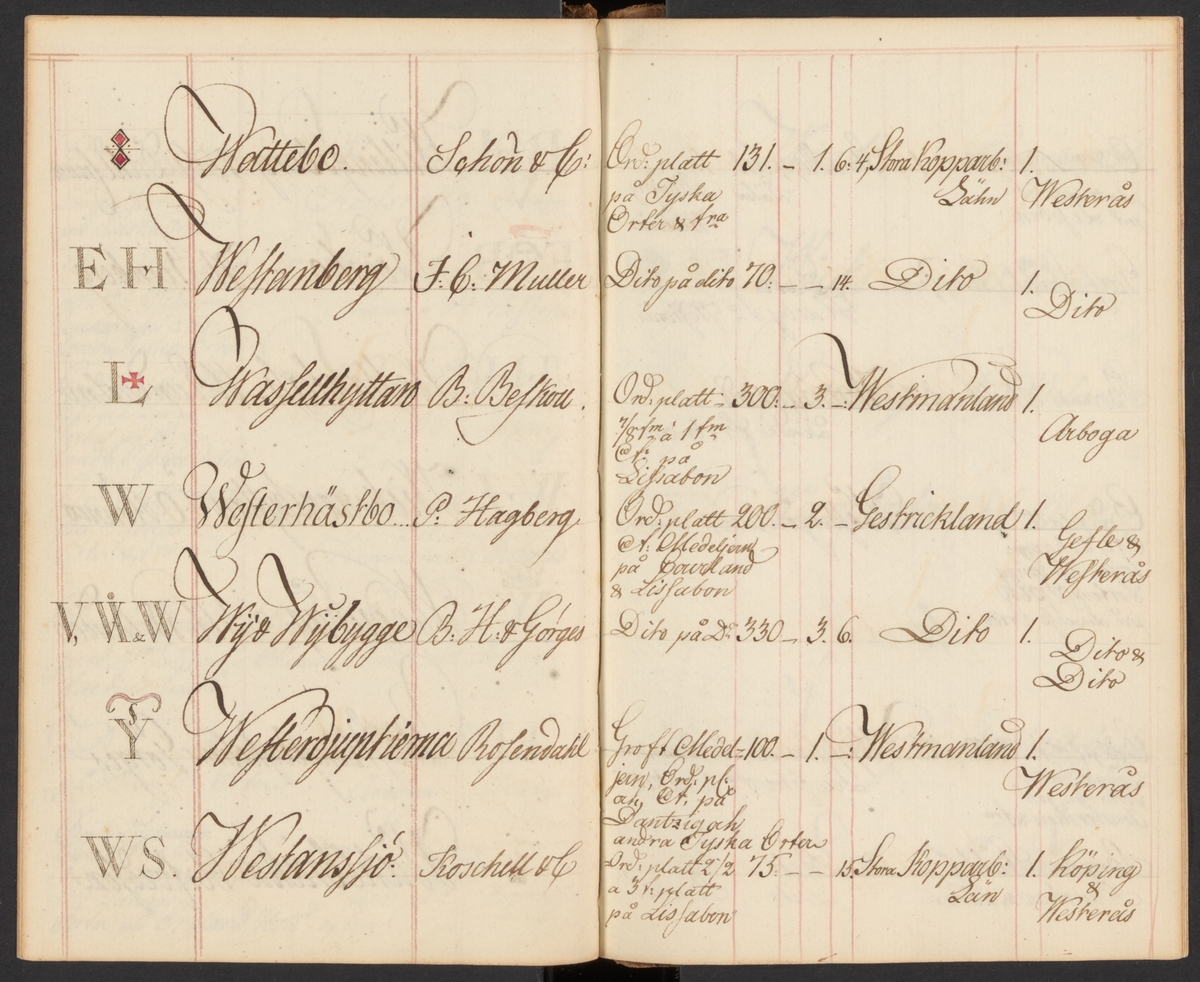 Wattebo. Schön & C: Ord: platt 131. – 1. 6: 4, Stora Kopparb: 1.
på Tyska Lähn Westerås
Orter & fra
E H Westanberg F. C: Muller Dito på dito 70: – – 14. Dito 1.
Dito
L Wassellhyttan B: Beskou. Ord: platt – 300. – 3. – Westmanland 1.
7/8 fm à 1 fm Arboga
på
Lissabon
W Westerhästbo... P: Hagberg. Ord: platt 200. – 2. – Gestrickland 1.
Ct: Medeljern Gefle &
på Courland Westerås
& Lissabon
V, W & W Wÿ & Wÿbygge B: H: & Görges Dito på Do 330 – 3. 6. Dito 1.
Dito &
Dito
Y Westerdjuptierna Rosendahl Groft Medel= 100. – 1. – Westmanland 1.
jern, Ord: pl: Westerås
an, Ct. på
Dantzig och
andra Tyska Orter
WS. Westanssjö. Koschell & C Ord: platt 2/2 75. – – 15. Stora Kopparb: 1. Köping
a 3 t: platt Län &
på Lissabon Westerås